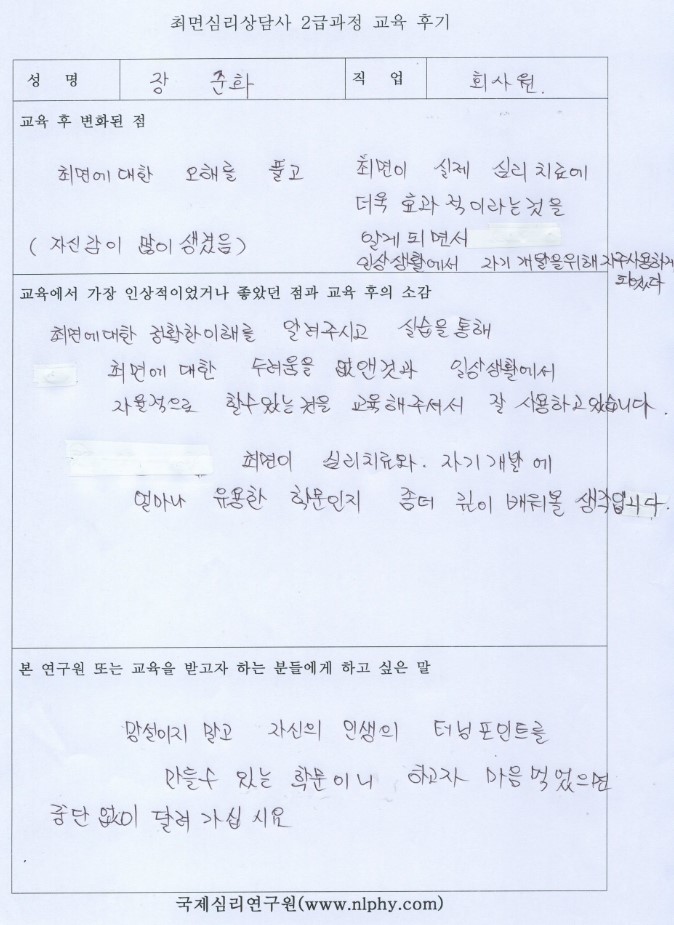 최면심리상담사 2급과정 교육 후기
성 명 장 준화 직 업 회사원.
교육 후 변화된 점
최면에 대한 오해를 풀고 최면이 실제 심리치료에
더욱 효과적이라는것을
(자신감이 많이 생겼음) 알게 되면서
일상생활에서 자기개발을위해 자주사용하게
되었다
교육에서 가장 인상적이었거나 좋았던 점과 교육 후의 소감
최면에대한 정확한이해를 알려주시고 실습을통해
최면에 대한 두려움을 없앤것과 일상생활에서
자율적으로 할수있는것을 교육해주셔서 잘 사용하고있습니다.
최면이 심리치료와. 자기개발에
얼마나 유용한 학문인지 좀더 깊이 배워볼 생각입니다.
본 연구원 또는 교육을 받고자 하는 분들에게 하고 싶은 말
망설이지 말고 자신의 인생의 터닝포인트를
만들수 있는 학문이니 하고자 마음먹었으면
중단없이 달려가십시요
국제심리연구원(www.nlphy.com)